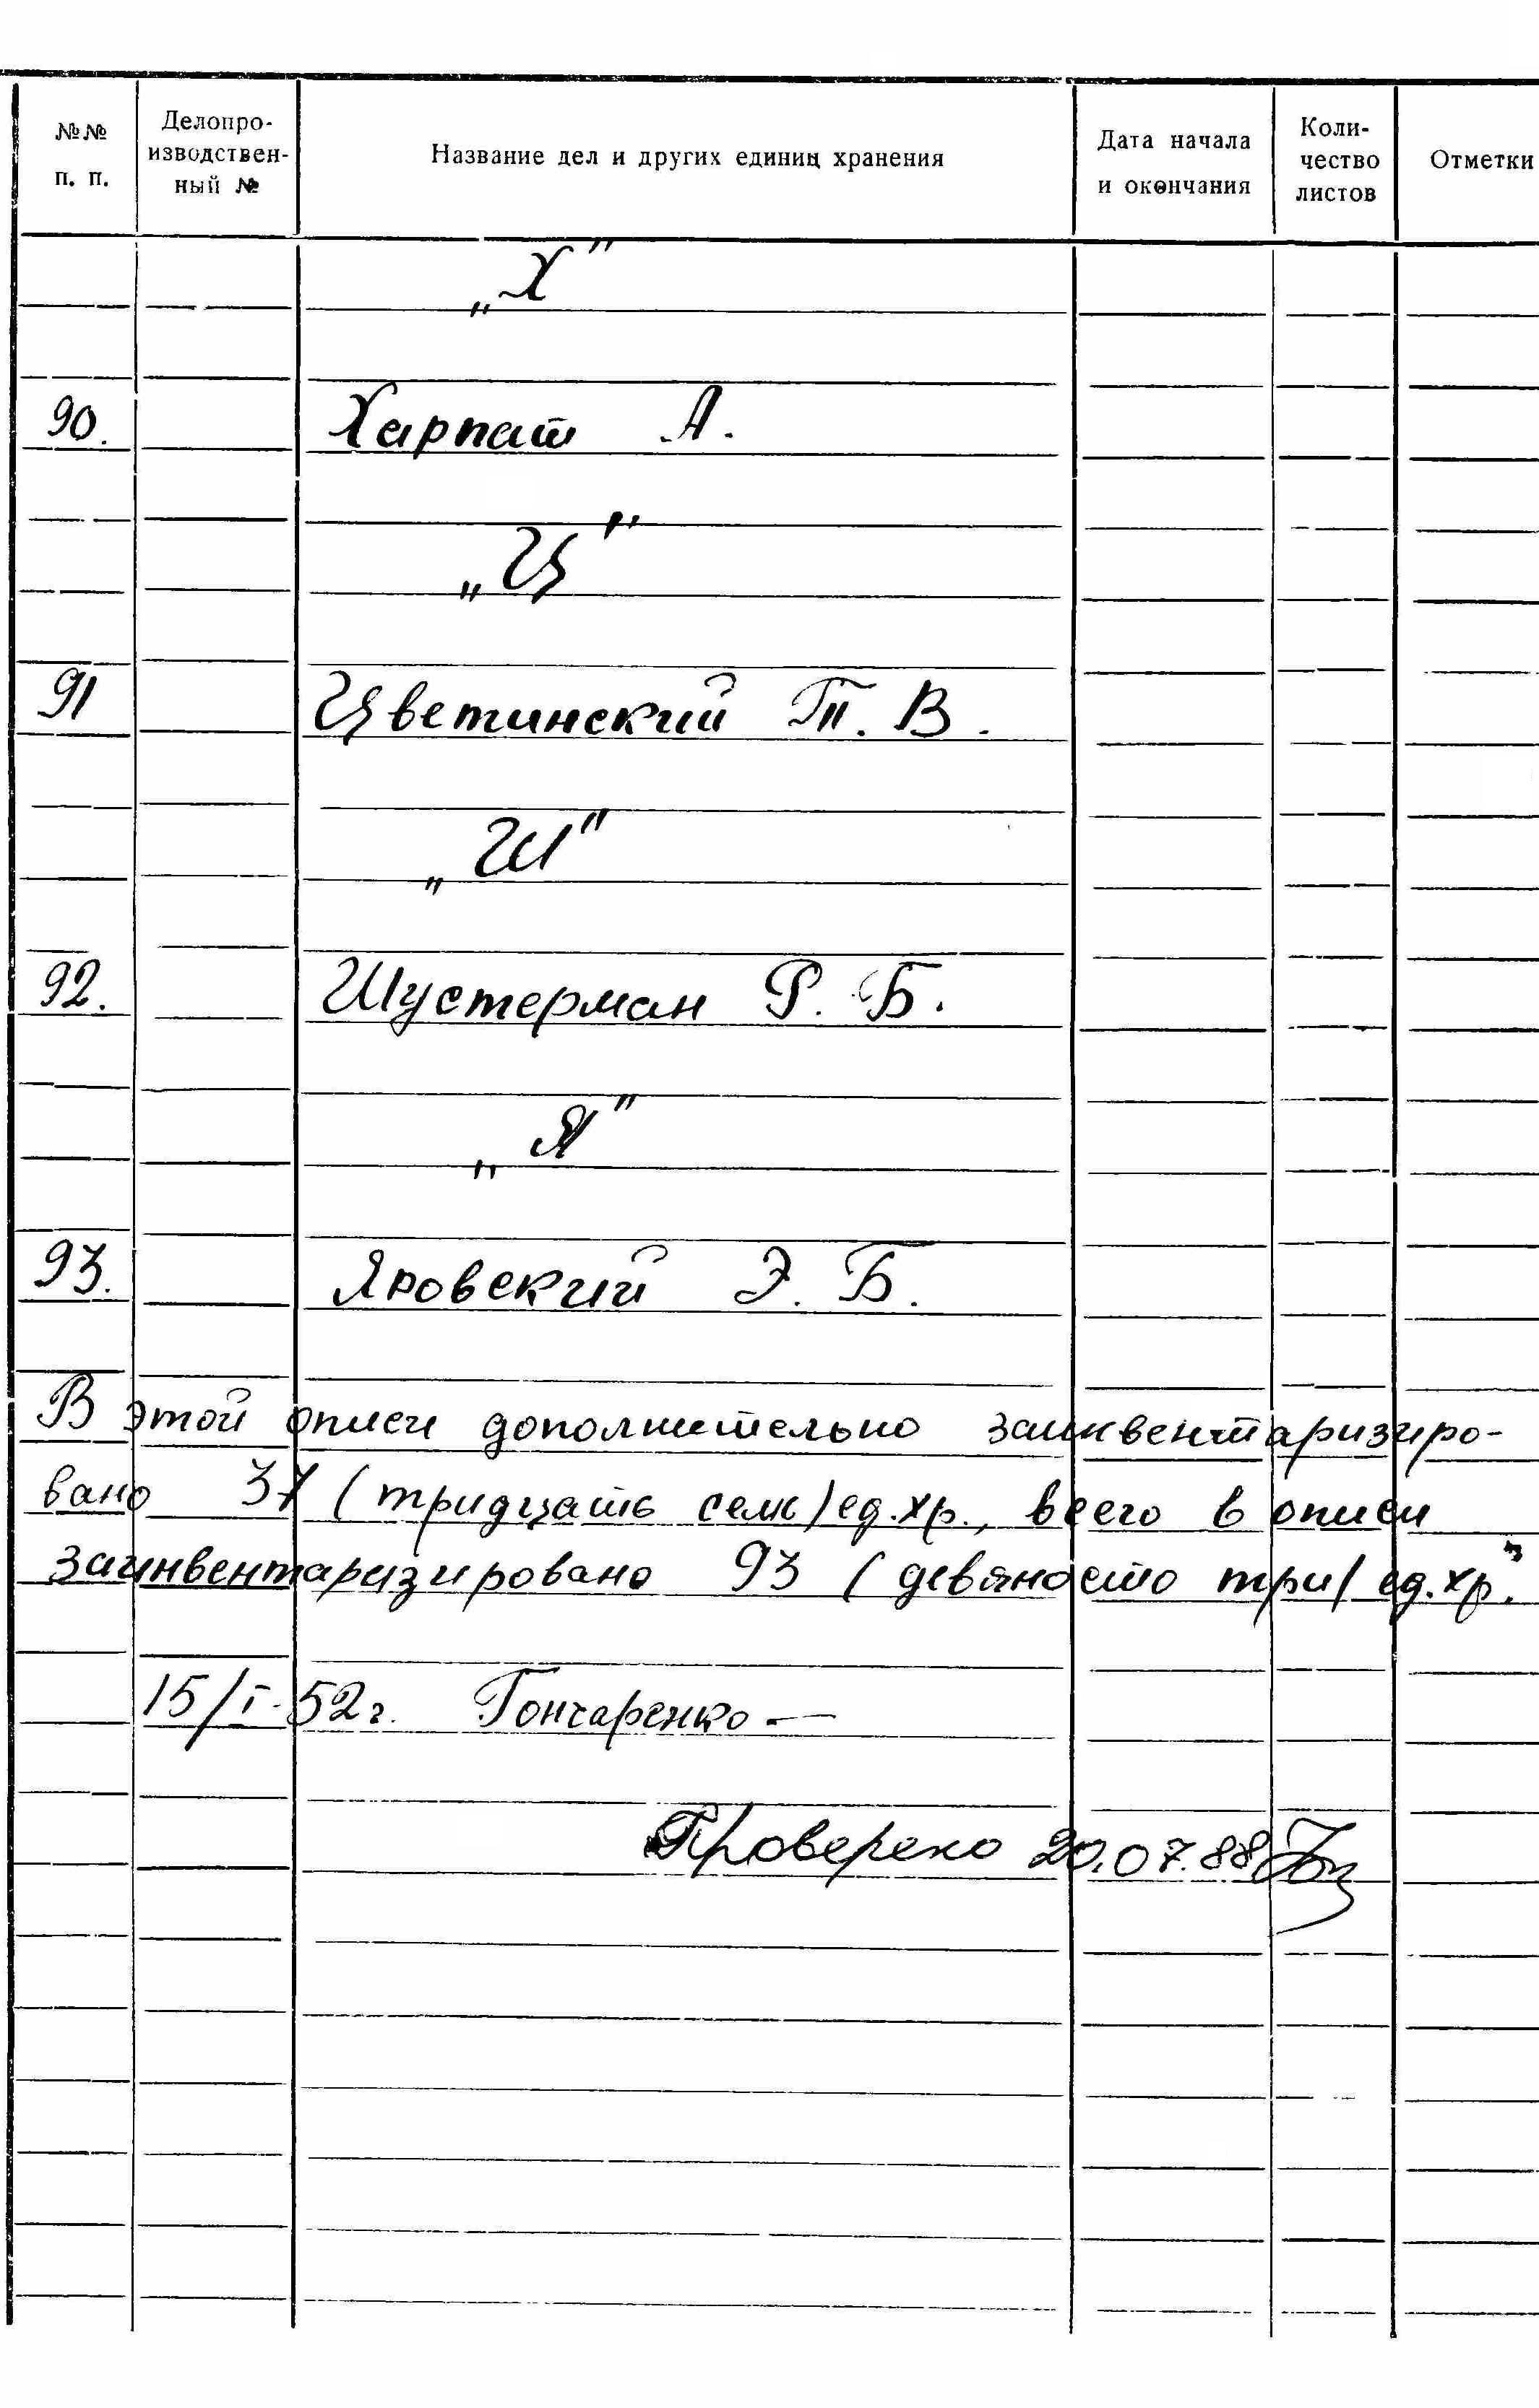 №№ п. п. Делопроизводственный № Название дел и других единиц хранения Дата начала и окончания Количество листов Отметки
„Х"
90. Харпат А.
„Ц"
91 Цветинский Т. В.
„Ш"
92. Шустерман Р. Б.
„Я"
93. Яровский Э. Б.
В этой описи дополнительно заинвентаризиро-
вано 37 (тридцать семь) ед.хр., всего в описи
заинвентаризировано 93 (девяносто три) ед.хр.
15/I-52г. Гончаренко
Проверено 20.07.88